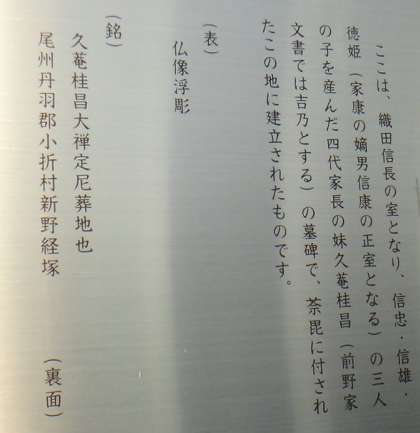 ここは、織田信長の室となり、信忠・信雄・
徳姫（家康の嫡男信康の正室となる）の三人
の子を産んだ四代家長の妹久菴桂昌（前野家
文書では吉乃とする）の墓碑で、荼毘に付され
たこの地に建立されたものです。
（表）
仏像浮彫
（銘）
久菴桂昌大禅定尼葬地也
尾州丹羽郡小折村新野経塚　（裏面）